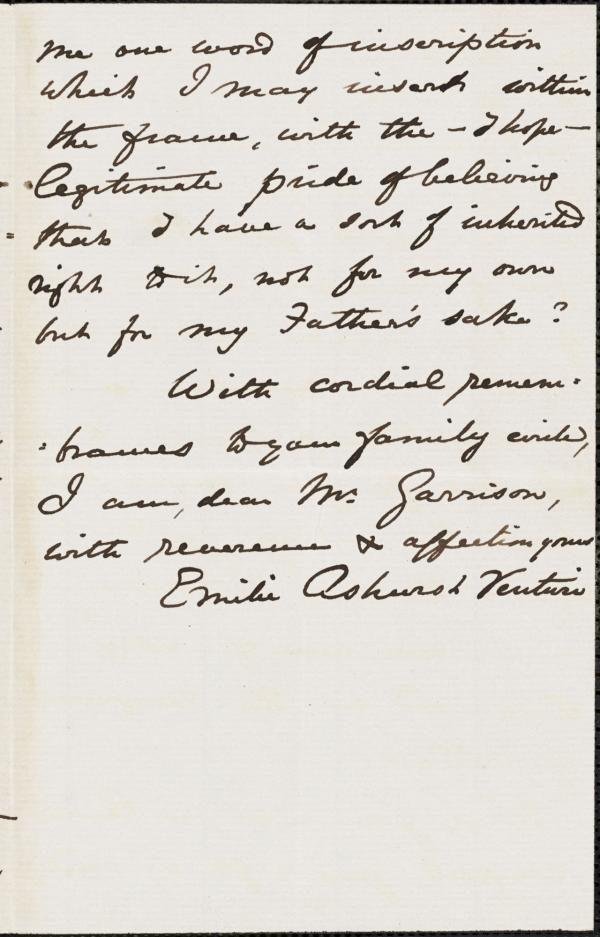 me one word of inscription
which I may insert within
the frame, with the – I hope –
legitimate pride of believing
that I have a sort of inherited
right to it, not for my own
but for my Father's sake?
With cordial remem-
-brances to your family circle,
I am, dear Mr. Garrison,
with reverence & affection yours
Emilie Ashurst Venturi